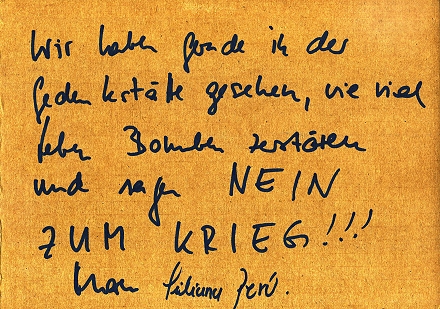 Wir haben gerade in der
Gedenkstätte gesehen, wie viel
Leben Bomben zerstören
und sagen NEIN
ZUM KRIEG!!!
Liliana